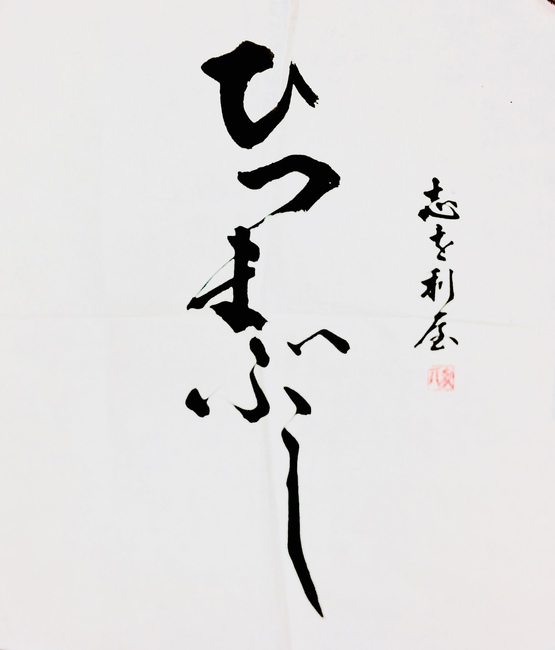 志を利屋
ひつまぶし